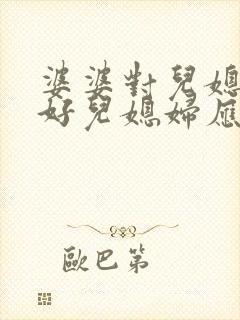 婆婆對兒媳
好兒媳婦應
歐巴第